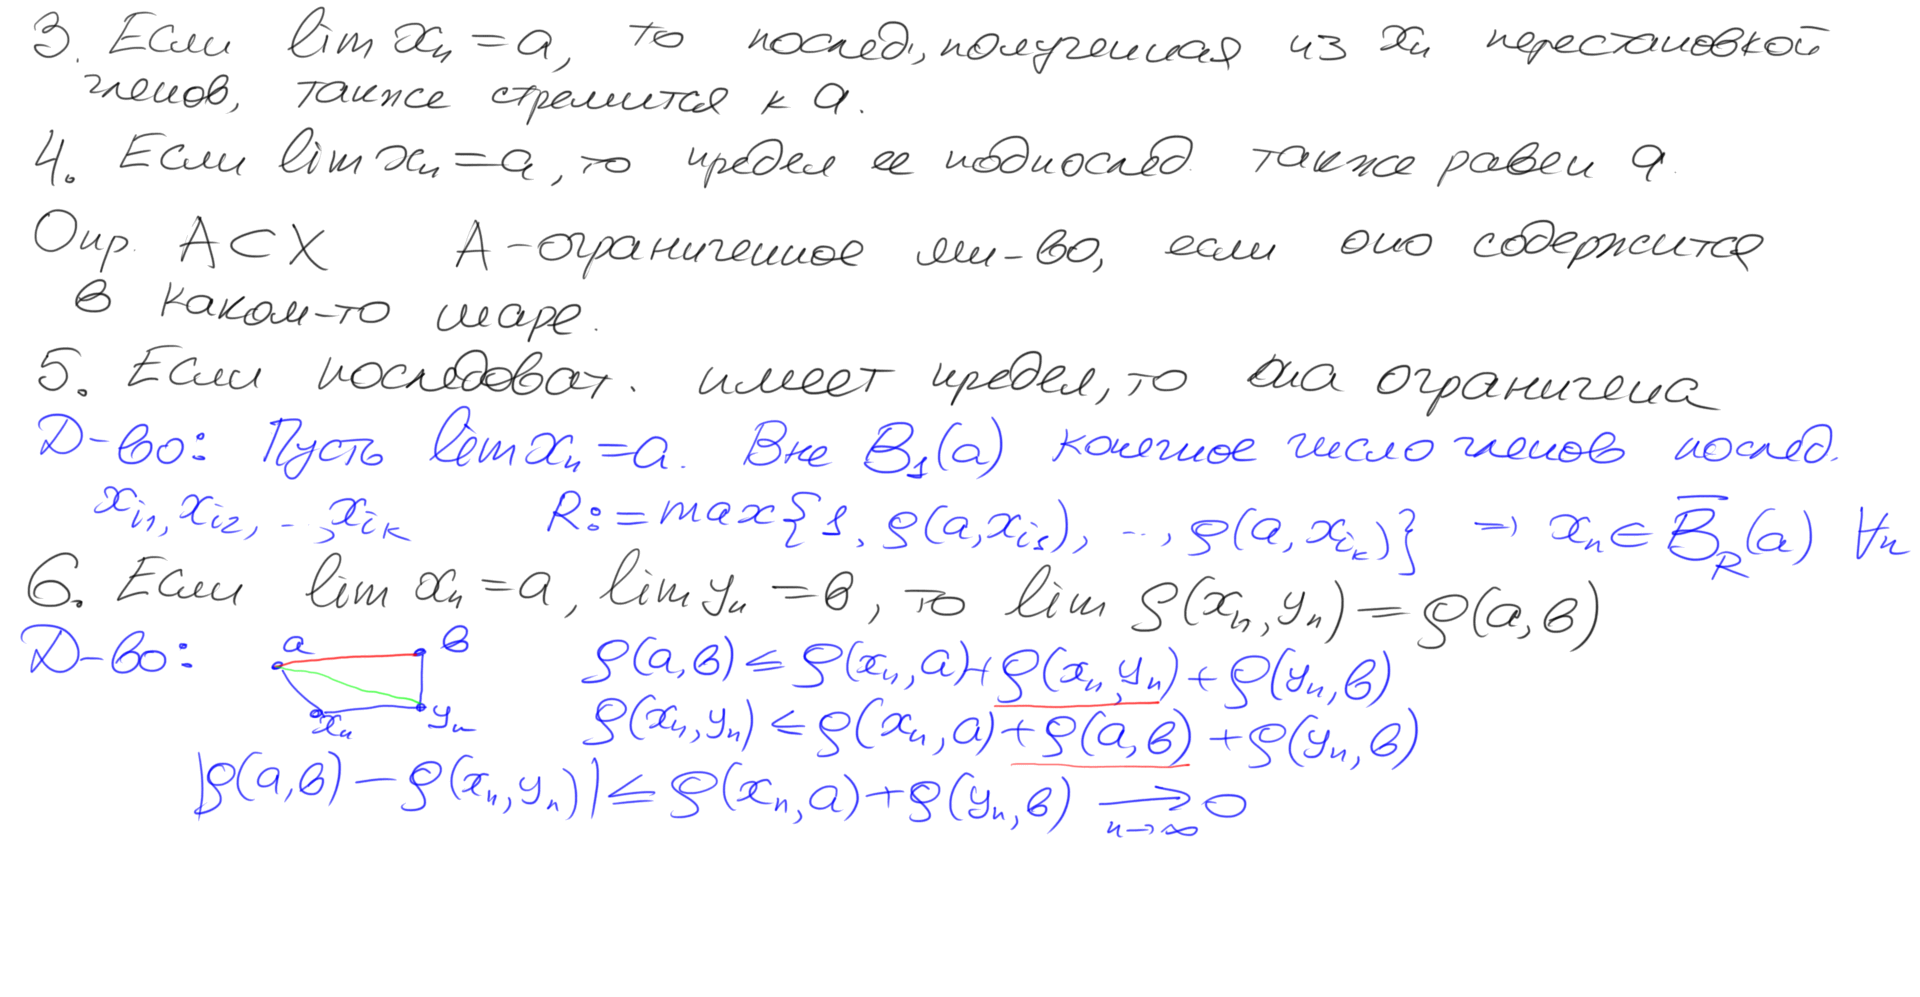 3. Если lim xₙ = a, то послед., полученная из xₙ перестановкой
членов, также стремится к a.
4. Если lim xₙ = a, то предел ее подпослед. также равен a.
Опр. A ⊂ X A - ограниченное мн-во, если оно содержится
в каком-то шаре.
5. Если последоват. имеет предел, то она ограничена
Д-во: Пусть lim xₙ = a. Вне B₁(a) конечное число членов послед.
x_{i₁}, x_{i₂}, ..., x_{i_k} R := max{1, ρ(a, x_{i₁}), ..., ρ(a, x_{i_k})} ⇒ xₙ ∈ B̅_R(a) ∀n
6. Если lim xₙ = a, lim yₙ = b, то lim ρ(xₙ, yₙ) = ρ(a, b)
Д-во: a b xₙ yₙ ρ(a, b) ≤ ρ(xₙ, a) + ρ(xₙ, yₙ) + ρ(yₙ, b)
ρ(xₙ, yₙ) ≤ ρ(xₙ, a) + ρ(a, b) + ρ(yₙ, b)
|ρ(a, b) − ρ(xₙ, yₙ)| ≤ ρ(xₙ, a) + ρ(yₙ, b) ⟶ 0
n→∞